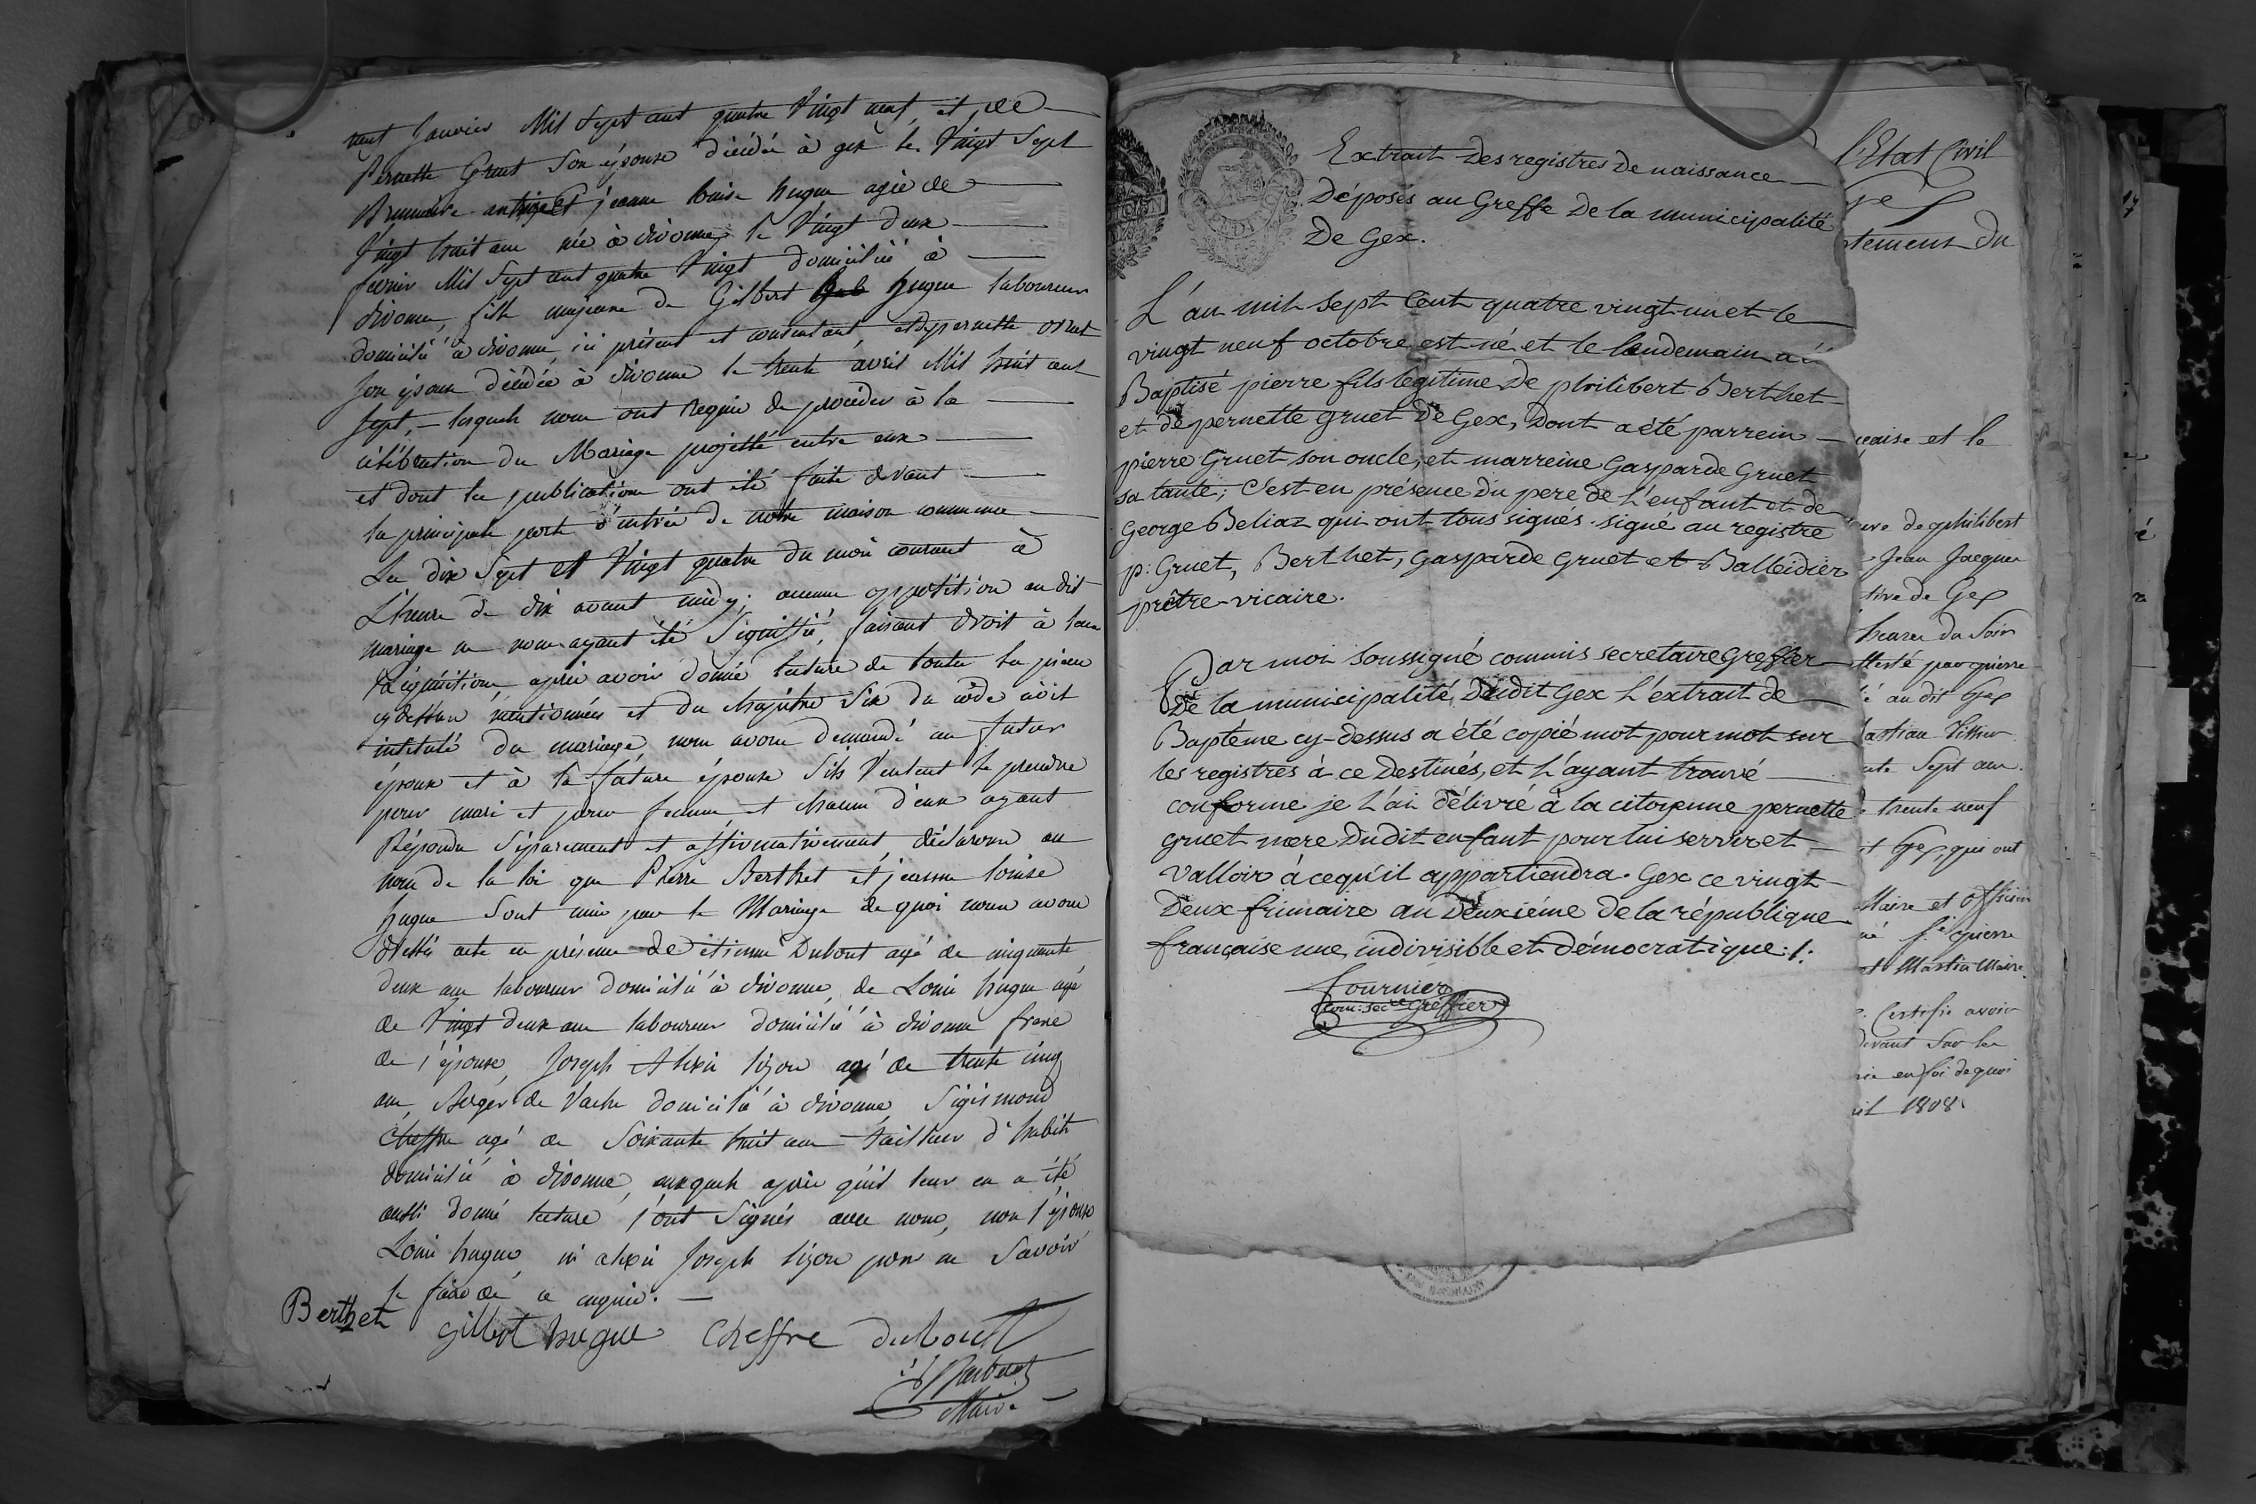 neuf Janvier Mil Sept cent quatre Vingt neuf, et de
Pernette Gruet Son épouse décédée à gex le Vingt Sept
Brumaire an treize Et jeanne louise hugue agée de
Vingt huit ans née à divonne le Vingt deux
fevrier Mil Sept cent quatre Vingt domiciliée à
divonne, fille majeure de Gilbert hugue laboureur
domicilié à divonne ici présent et consentant, et de pernette
Son épouse décédée à divonne le trente avril Mil huit cent
Sept, — lesquels nous ont requis de procéder à la
célébration du Mariage projetté entre eux
et dont les publications ont été faites devant
la principale porte d'entrée de notre maison commune
Les dix Sept et Vingt quatre du mois courant à
L'heure de dix avant midy; aucune opposition au dit
mariage ne nous ayant été Signifiée, faisant droit à leur
réquisition, après avoir donné lecture de toutes les pièces
cy dessus mentionnées et du chapitre Six du code civil
intitulé du mariage, nous avons demandé au futur
époux et à la future épouse S'ils Veulent se prendre
pour mari et pour femme, et chacun d'eux ayant
Répondu Séparement et affirmativement, déclarons au
nom de la loi que Pierre Berthet et jeanne louise
hugue Sont unis par le Mariage de quoi nous avons
dressés acte en présence de étienne Dubout agé de cinquante
deux ans laboureur domicilié à divonne, de Louis hugue agé
de Vingt deux ans laboureur domicilié à divonne frere
de l'épouse, Joseph Alexis lizon agé de trente cinq
ans, Berger de Vache domicilié à divonne, Sigismond
Cheffre agé de Soixante huit ans tailleur d'habits
domicilié à divonne, auxquels après qu'il leur en a été
aussi donné lecture l'ont Signés avec nous, non l'épouse
Louis hugue, ni alexis Joseph lizon pour ne Savoir
le faire de ce enquis. —
Berthet gilbert hugue Cheffre dubout
Maire
Extrait Des registres De naissance
Déposés au Greffe De la municipalité
De Gex.
L'an mil sept Cent quatre vingt-un et le
vingt neuf octobre est né et le lendemain a été
Baptisé pierre fils legitime De philibert Berthet
et de pernette gruet De Gex, Dont a été parrein
pierre Gruet son oncle, et marreine Gasparde Gruet
sa tante; C'est en présence Du pere De L'enfant et de
George Beliaz qui ont tous signés. signé au registre
p: Gruet, Berthet, Gasparde Gruet et Balleidier
prêtre-vicaire.
Par moi Soussigné commis secretaire Greffier
De la municipalité Dudit Gex L'extrait de
Baptême cy-dessus a été copié mot pour mot sur
les registres à ce Destinés, et L'ayant trouvé
conforme je L'ai Délivré à la citoyenne pernette
gruet mere Dudit enfant pour lui servir et
Valloir à ce qu'il appartiendra. Gex ce vingt
Deux frimaire an Deuxième De la république
française une, indivisible et démocratique ./.
Fournier
Com: secre Greffier
l'Etat Civil
tement du
çaise et le
de philibert
Jean Jacques
tive de Gex
heures du Soir
attesté par pierre
é au dit Gex
Sept ans.
trente neuf
et Gex, qui ont
Maire et officier
né pierre
et Martin Maire.
Certifie avoir
devant Sur les
en foi de quoi
1808.